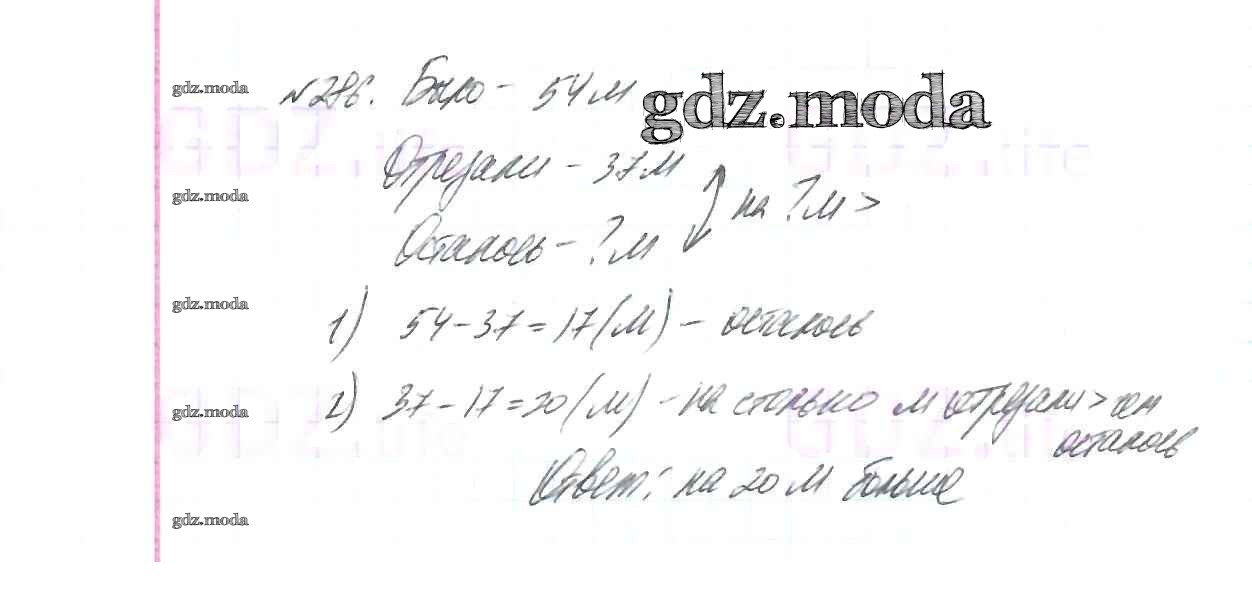 №286. Было - 54 м
gdz.moda
gdz.moda
Отрезали - 37 м
gdz.moda
на ? м >
Осталось - ? м
gdz.moda
1) 54 - 37 = 17 (м) - осталось
gdz.moda
2) 37 - 17 = 20 (м) - на столько м отрезали > чем
осталось
Ответ: на 20 м больше
gdz.moda